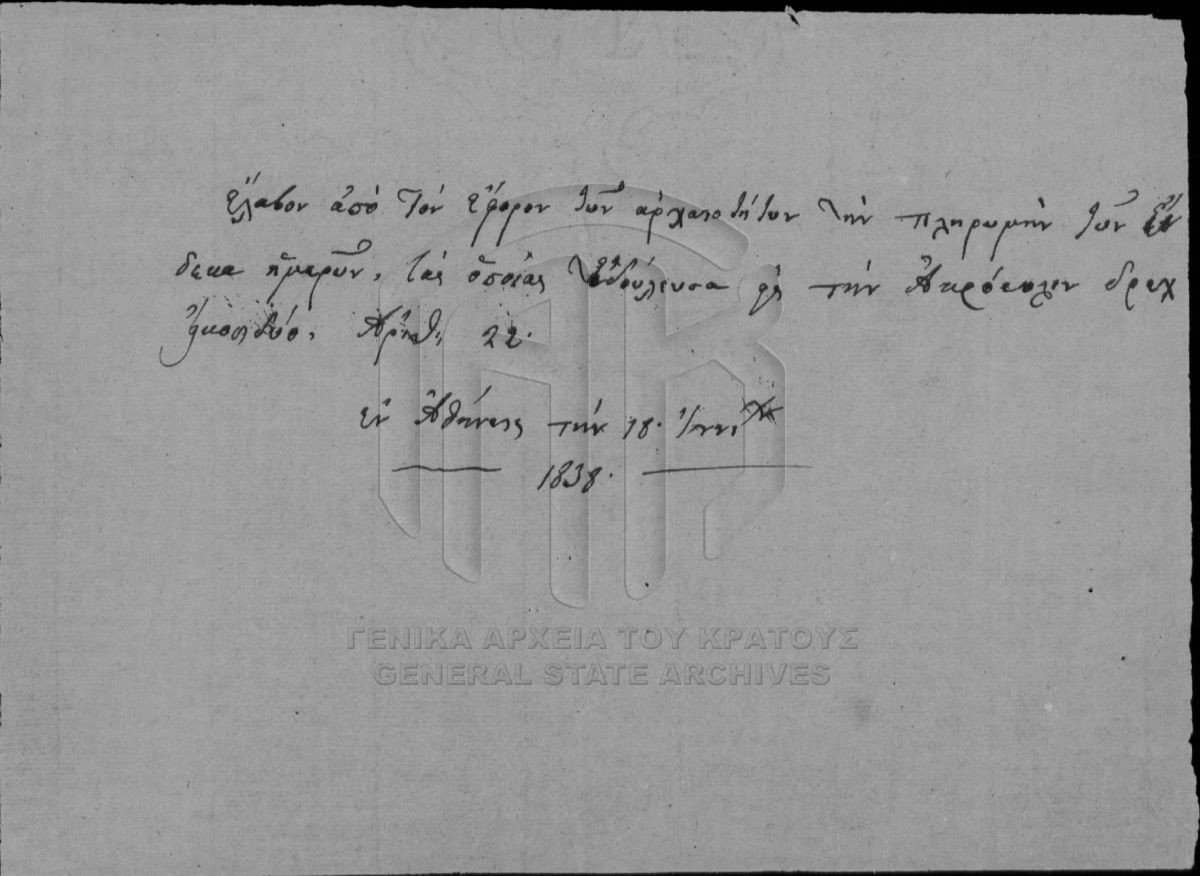 ἔλαβον ἀπὸ τὸν ἔφορον τῶν ἀρχαιοτήτων τὴν πληρωμὴν τῶν ἕν
δεκα ἡμερῶν, τὰς ὁποίας ἐδούλευσα εἰς τὴν Ἀκρόπολιν δραχ
εἰκοσιδύο, Ἀριθ. 22.
ἐν Ἀθήναις τὴν 18.
1838.
ΓΕΝΙΚΑ ΑΡΧΕΙΑ ΤΟΥ ΚΡΑΤΟΥΣ
GENERAL STATE ARCHIVES